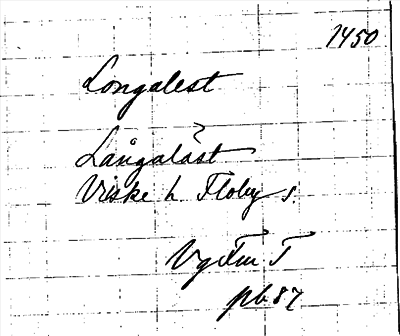 1450
Longalest
?
Långaläst
Viske h Floby s.
Vgfm I
pb 87